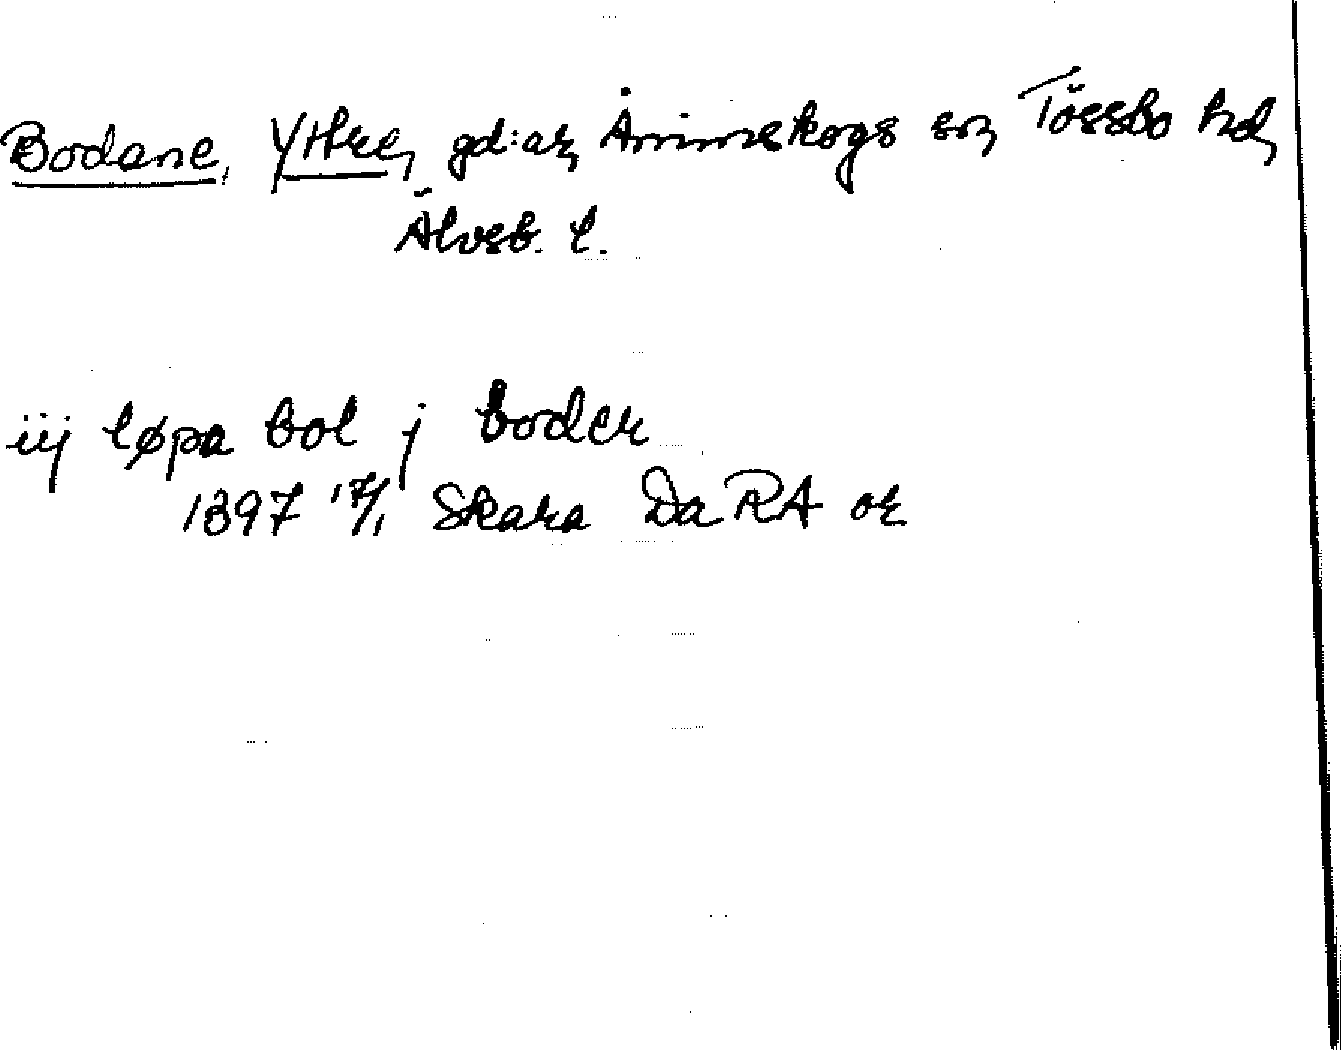 Bodane, Yttre, gd:ar, Ånimskogs sn, Tössbo hd,
Älvsb. l.
iij løpa bol j boder
1397 17/1 Skara Da RA or